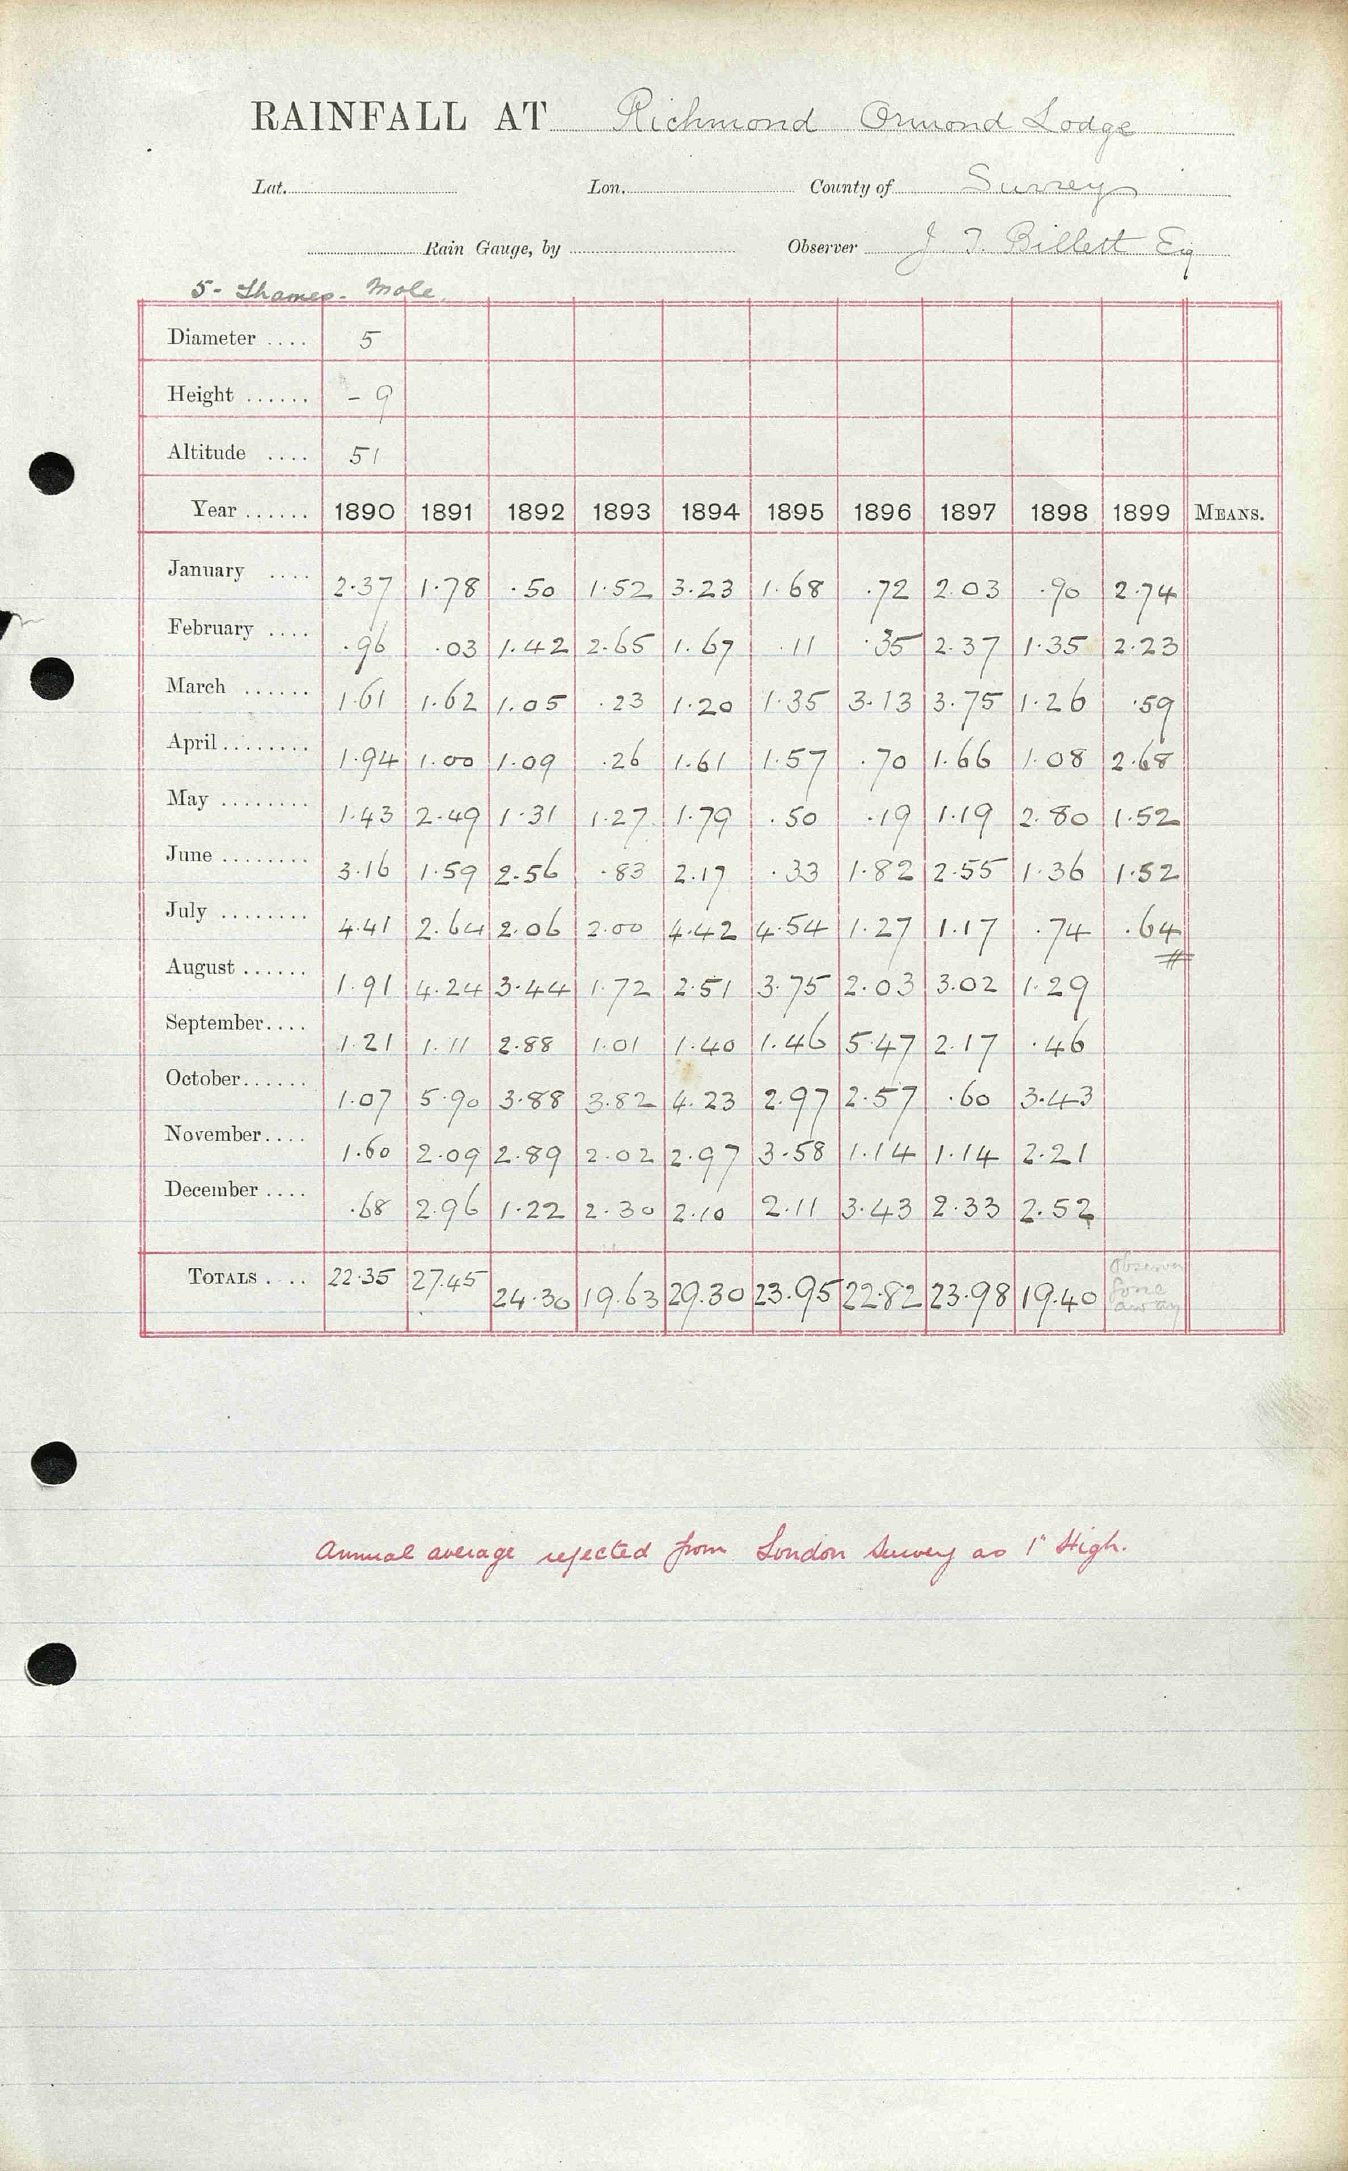 RAINFALL AT Richmond Ormond Lodge
Lat. Lon. County of Surrey
Rain Gauge, by Observer J. T. Billett Esq
5- Thames - Mole.
Diameter .... 5
Height ...... - 9
Altitude .... 51
Year ...... 1890 1891 1892 1893 1894 1895 1896 1897 1898 1899 MEANS.
January .... 2.37 1.78 .50 1.52 3.23 1.68 .72 2.03 .90 2.74
February .... .96 .03 1.42 2.65 1.67 .11 .35 2.37 1.35 2.23
March ...... 1.61 1.62 1.05 .23 1.20 1.35 3.13 3.75 1.26 .59
April ........ 1.94 1.00 1.09 .26 1.61 1.57 .70 1.66 1.08 2.68
May ........ 1.43 2.49 1.31 1.27 1.79 .50 .19 1.19 2.80 1.52
June ........ 3.16 1.59 2.56 .83 2.17 .33 1.82 2.55 1.36 1.52
July ........ 4.41 2.64 2.06 2.00 4.42 4.54 1.27 1.17 .74 .64
August ...... 1.91 4.24 3.44 1.72 2.51 3.75 2.03 3.02 1.29
September.... 1.21 1.11 2.88 1.01 1.40 1.46 5.47 2.17 .46
October...... 1.07 5.90 3.88 3.82 4.23 2.97 2.57 .60 3.43
November.... 1.60 2.09 2.89 2.02 2.97 3.58 1.14 1.14 2.21
December .... .68 2.96 1.22 2.30 2.10 2.11 3.43 2.33 2.52
TOTALS .... 22.35 27.45 24.30 19.63 29.30 23.95 22.82 23.98 19.40 Observer gone away
Annual average rejected from London Survey as 1" High.